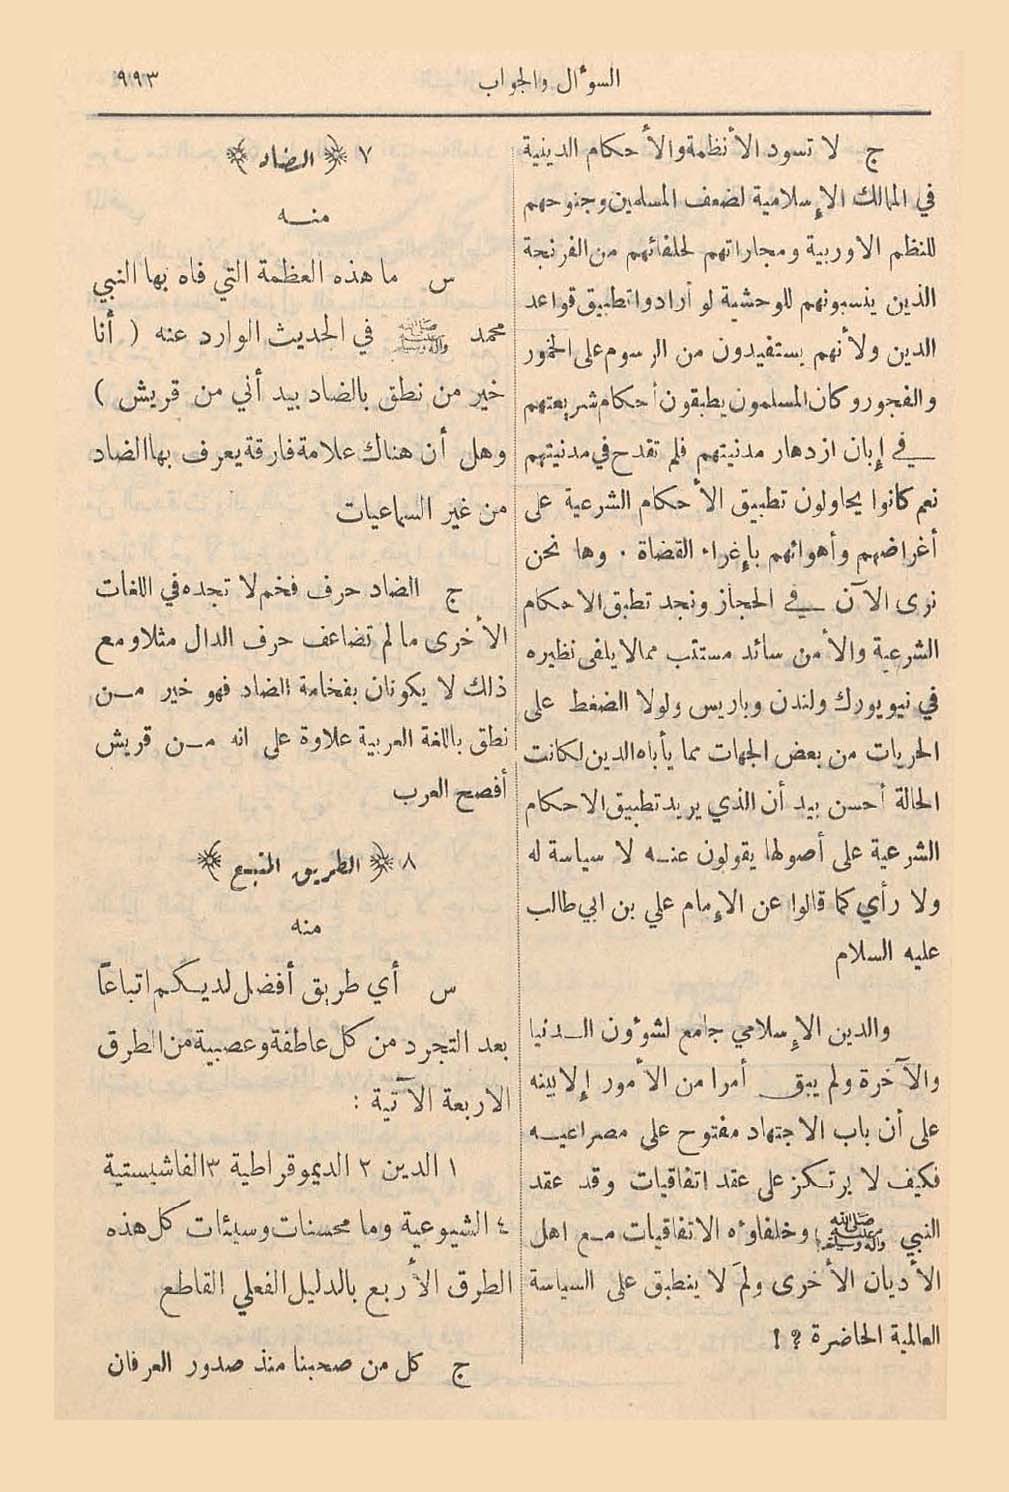 السوٴال والجواب
٩٩٣
ج لا تسود الأنظمة والأحكام الدينية
في المالك الإسلامية لضعف المسلمين وجنوحهم
للنظم الاوربية ومجاراتهم لحلفائهم من الفرنجة
الذين ينسبونهم للوحشية لو أرادوا تطبيق قواعد
الدين ولأنهم يستفيدون من الرسوم على الخمور
والفجور وكان المسلمون يطبقون أحكام شريعتهم
في إبان ازدهار مدنيتهم فلم تقدح في مدنيتهم
نعم كانوا يحاولون تطبيق الأحكام الشرعية على
أغراضهم وأهوائهم بإغراء القضاة . وها نحن
نرى الآن في الحجاز ونجد تطبق الاحكام
الشرعية والأمن سائد مستتب ممالا يلفى نظيره
في نيويورك ولندن وباريس ولولا الضغط على
الحريات من بعض الجهات مما يأباه الدين لكانت
الحالة أحسن بيد أن الذي يريد تطبيق الاحكام
الشرعية على أصولها يقولون عنه لا سياسة له
ولا رأي كما قالوا عن الإمام علي بن ابي طالب
عليه السلام
والدين الإسلامي جامع لشوٴون الدنيا
والآخرة ولم يبق أمرا من الأمور إلا بينه
على أن باب الاجتهاد مفتوح على مصراعيه
فكيف لا يرتكز على عقد اتفاقيات وقد عقد
النبي ﷺ وخلفاوٴه الاتفاقيات مع اهل
الأديان الأخرى ولمَ لا ينطبق على السياسة
العالمية الحاضرة ؟ !
٧ ﴿ الضاد ﴾
منه
س ما هذه العظمة التي فاه بها النبي
محمد ﷺ في الحديث الوارد عنه ( أنا
خير من نطق بالضاد بيد أني من قريش )
وهل أن هناك علامة فارقة يعرف بها الضاد
من غير السماعيات
ج الضاد حرف فخم لا تجده في اللغات
الأخرى ما لم تضاعف حرف الدال مثلا ومع
ذلك لا يكونان بفخامة الضاد فهو خير من
نطق باللغة العربية علاوة على انه من قريش
أفصح العرب
٨ ﴿ الطريق المتبع ﴾
منه
س أي طريق أفضل لديكم اتباعًا
بعد التجرد من كل عاطفة وعصبية من الطرق
الاربعة الآتية :
١ الدين ٢ الديموقراطية ٣ الفاشيستية
٤ الشيوعية وما محسنات وسيئات كل هذه
الطرق الأربع بالدليل الفعلي القاطع
ج كل من صحبنا منذ صدور العرفان